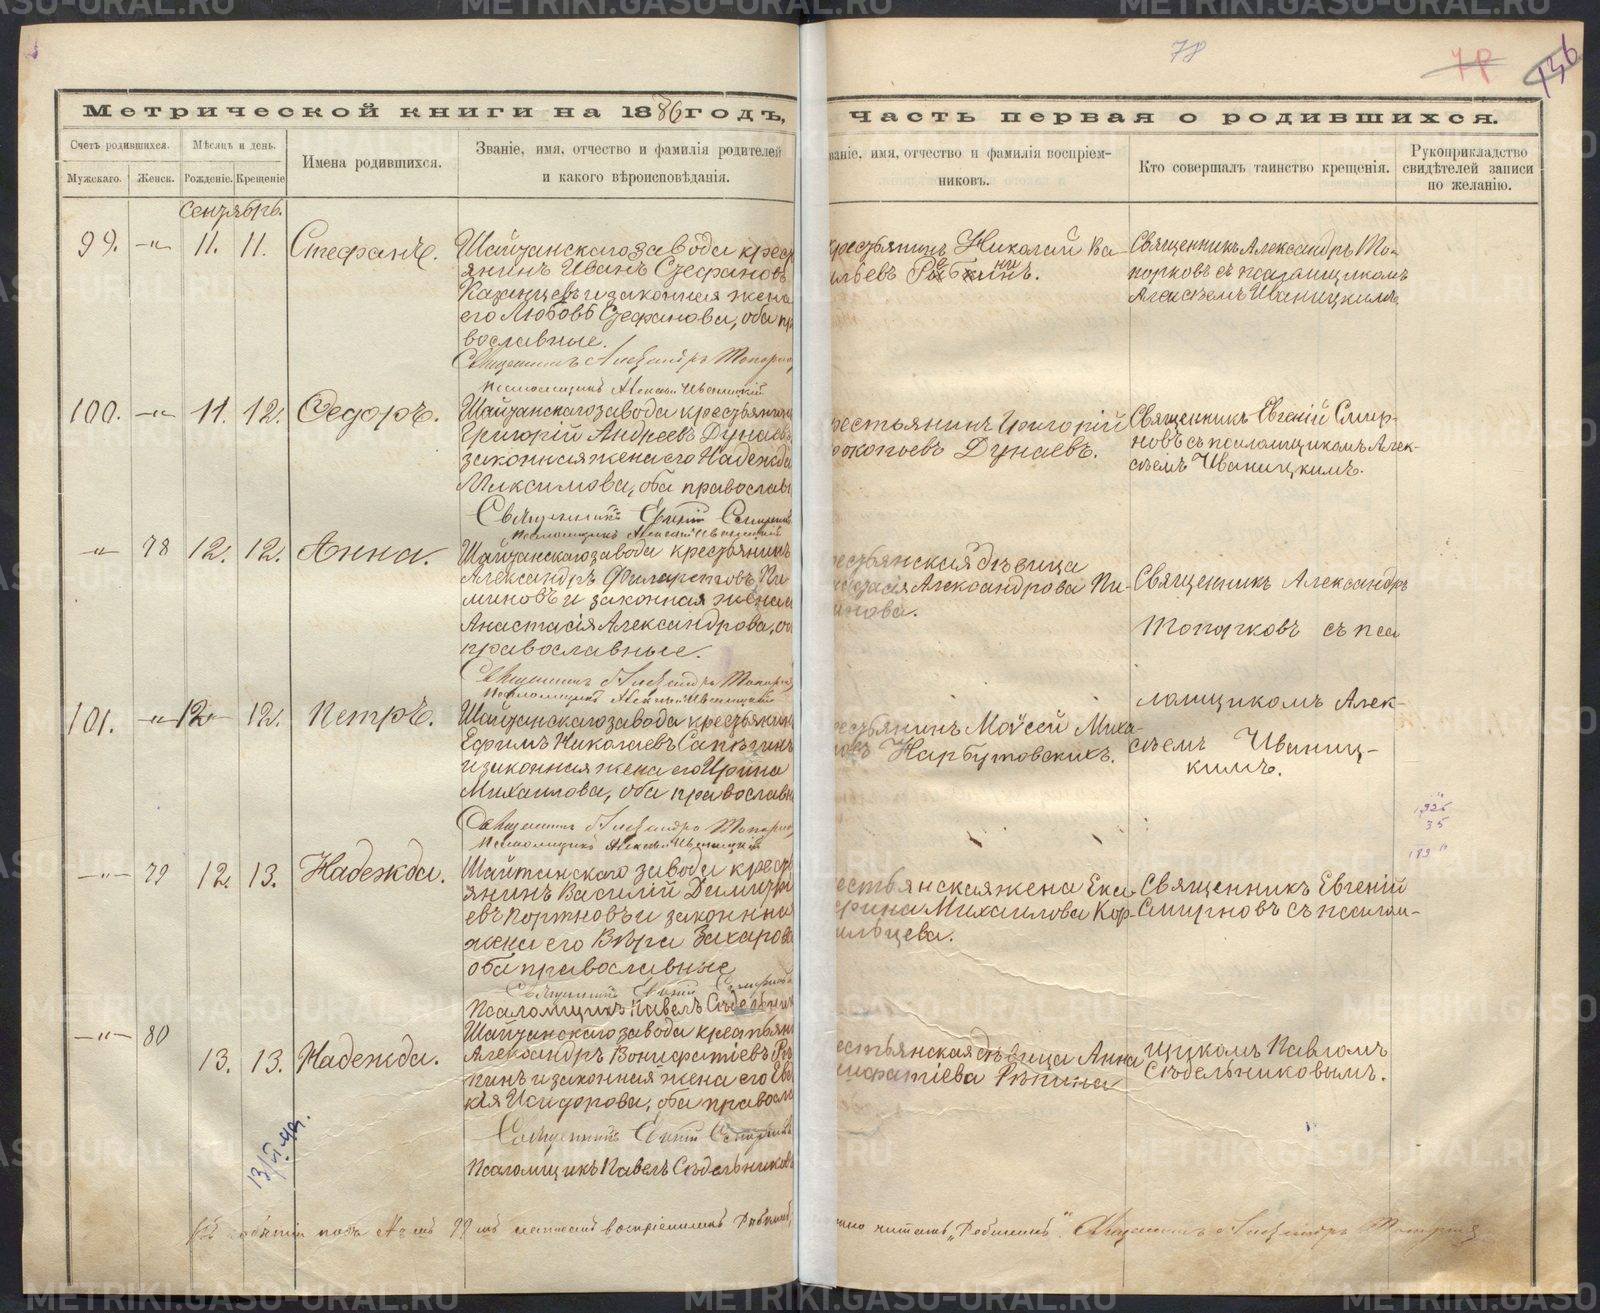 78
136
Метрической книги на 1886 годъ,
часть первая о родившихся.
Счетъ родившихся.
Мѣсяцъ и день.
Имена родившихся.
Званіе, имя, отчество и фамилія родителей
и какого вѣроисповѣданія.
Мужскаго.
Женск.
Рожденіе.
Крещеніе
ваніе, имя, отчество и фамилія воспріем-
никовъ.
Кто совершалъ таинство крещенія.
Рукоприкладство
свидѣтелей записи
по желанію.
Сентябрь.
99. —"— 11. 11. Стефанъ.
Шайтанскаго завода крест
янинъ Иванъ Стефановъ
Казанцевъ и законная жена
его Любовь Стефанова, оба пр
вославные.
Священникъ Александръ Топорко
Псаломщикъ Алексѣй Иваницкій
крестьянинъ Николай Ва
ильевъ
Священникъ Александръ То-
порковъ съ псаломщикомъ
Алексѣемъ Иваницкимъ
100. —"— 11. 12. Ѳедоръ.
Шайтанскаго завода крестьянин
Григорій Андреевъ Дунаевъ
законная жена его Надежда
Максимова, оба православн
Священникъ Евгеній Смирнов
Псаломщикъ Алексѣй Иваницкій
рестьянинъ Григорій
рокопьевъ Дунаевъ.
Священникъ Евгеній Смир-
новъ съ псаломщикомъ Алек-
сѣемъ Иваницкимъ.
—"— 78 12. 12. Анна.
Шайтанскаго завода крестьянинъ
Александръ Филаретовъ Пи
миновъ и законная жена
Анастасія Александрова, об
православные.
Священникъ Александръ Топорко
Псаломщикъ Алексѣй Иваницкій
рестьянская дѣвица
астасія Александрова Пи-
инова.
Священникъ Александръ
Топорковъ съ пса
ломщикомъ Алек-
сѣемъ Иваниц-
кимъ.
101. —"— 12 12. Петръ.
Шайтанскаго завода крестьянин
Ефимъ Николаевъ Сапѣгинъ
и законная жена его Ирина
Михаилова, оба православн
Священникъ Александръ Топорко
Псаломщикъ Алексѣй Иваницкій
рестьянинъ Моѵсей Миха
ловъ Нарбутовскихъ.
—"— 79 12. 13. Надежда.
Шайтанскаго завода крест
янинъ Василій Димитрі
евъ Портновъ и законна
жена его Вѣра Захарова
оба православные
Священникъ Евгеній Смирнов
Псаломщикъ Павелъ Сѣдельник
естьянская жена Ека
ерина Михаилова Кор-
ильцева.
Священникъ Евгеній
Смирновъ съ псалом-
—"— 80 13. 13. Надежда.
Шайтанскаго завода крестьян
Александръ Вонифатіевъ Рѣ
пинъ и законная жена его Ев
кія Исидорова, оба правосл
Священникъ Евгеній Смирновъ
Псаломщикъ Павелъ Сѣдельников
естьянская дѣвица Анна
нифатіева Рѣпина
щикомъ Павломъ
Сѣдельниковымъ.
читать „Рябининъ". Священникъ Александръ Топорков
METRIKI.GASO-URAL.RU